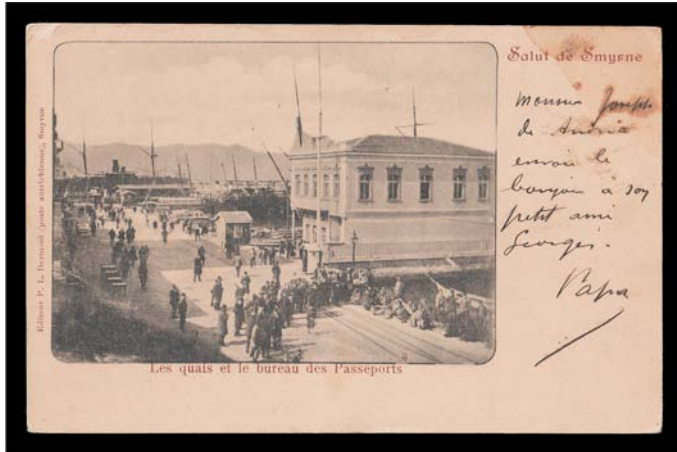 Salut de Smyrne
Monsieur Joseph
de Andria
envoie le
bonjour à son
petit ami
Georges.
Papa
Les quais et le bureau des Passeports
Editeur P. L. Dermond (poste autrichienne), Smyrne